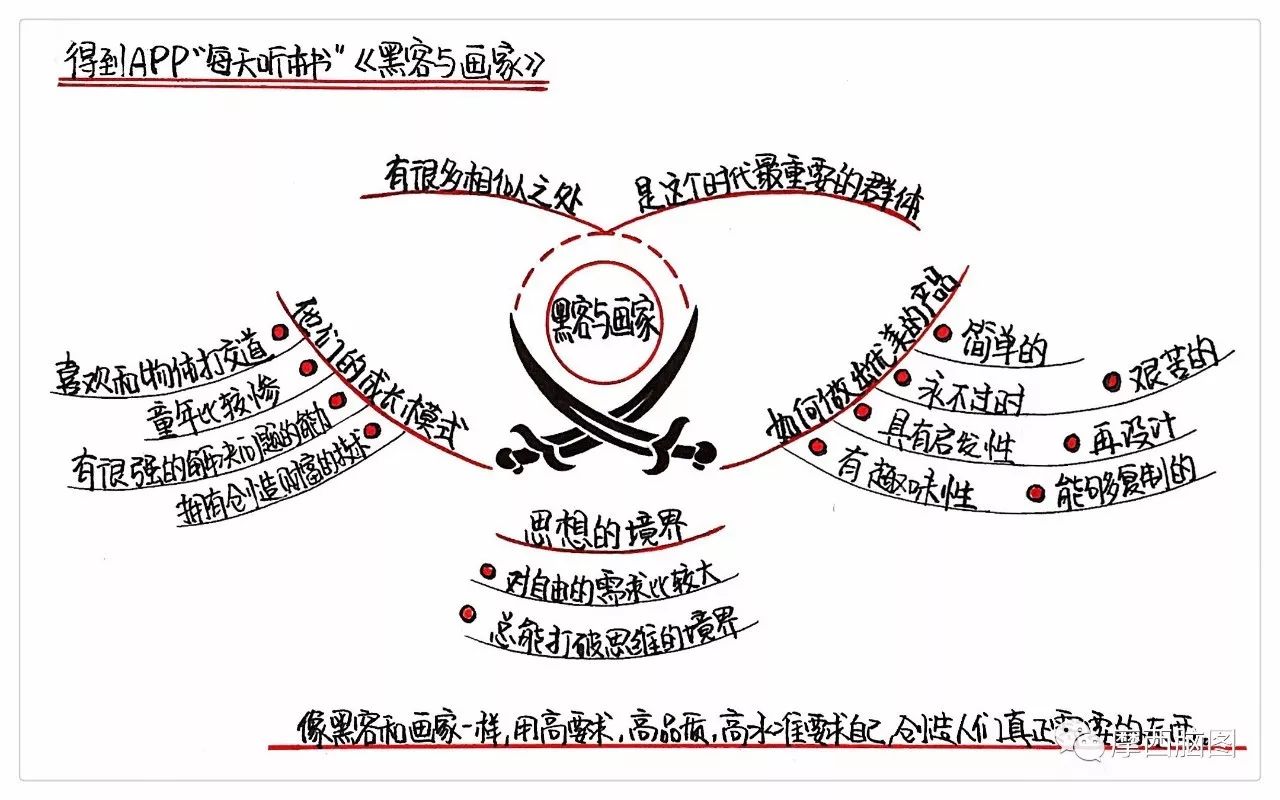 得到APP“每天听本书”《黑客与画家》
有很多相似之处
是这个时代最重要的群体
黑客与画家
他们的成长模式
喜欢和物体打交道
童年比较惨
有很强的解决问题的能力
拥有创造财富的技术
如何做出优美的产品
简单的
永不过时
艰苦的
具有启发性
再设计
有趣味性
能够复制的
思想的境界
对自由的需求比较大
总能打破思维的境界
像黑客和画家一样,用高要求,高品质,高水准要求自己,创造人们真正需要的东西。
摩西脑图